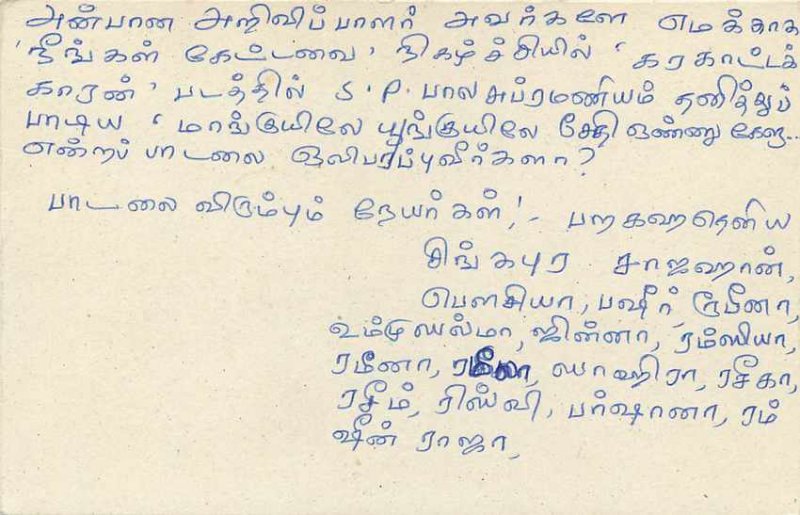 அன்பான அறிவிப்பாளர் அவர்களே எமக்காக
'நீங்கள் கேட்டவை' நிகழ்ச்சியில் 'கரகாட்டக்
காரன்' படத்தில் S.P. பாலசுப்ரமணியம் தனித்துப்
பாடிய 'மாங்குயிலே பூங்குயிலே சேதி ஒண்ணு கேளு..
என்றப் பாடலை ஒலிபரப்புவீர்களா?
பாடலை விரும்பும் நேயர்கள்!- பறகஹதெனிய
சிங்கபுர சாஜஹான்,
பௌசியா, பஷீர், ரூபீனா,
ஜின்னா, ரம்ஸியா,
ரமீனா, ஸாஹிரா, ரசீகா,
ரசீம், ரிஸ்வி, பர்ஷானா, ரம்
ஷீன் ராஜா,